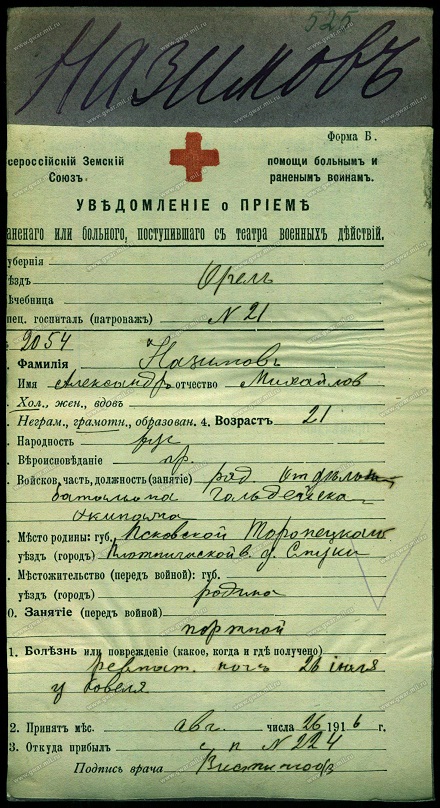 525
Назимовъ
Форма Б.
сероссійскій Земскій помощи больнымъ и
Союзъ. раненымъ воинамъ.
УВѢДОМЛЕНІЕ о ПРІЕМѢ
аненаго или больного, поступившаго съ театра военныхъ дѣйствій.
убернія
ѣздъ Орелъ
ѣчебница
пец. госпиталь (патроважъ) N 21
2054
. Фамилія Назимовъ
Имя Александръ отчество Михайлов
Хол., жен., вдовъ
. Неграм., грамотн., образован. 4. Возрастъ 21
. Народность рус
. Вѣроисповѣданіе пр.
. Войсков. часть, должность (занятіе) ряд
баталіона
. Мѣсто родины: губ. Псковской Торопецкаго
уѣздъ (городъ) в. д.
. Мѣстожительство (передъ войной): губ.
уѣздъ (городъ) родина
0. Занятіе (передъ войной)
портной
1. Болѣзнь или поврежденіе (какое, когда и гдѣ получено)
ревмат. ногъ 26 іюля
у Ковеля
2. Принятъ мѣс. авг. числа 26 1916 г.
3. Откуда прибылъ с п N 224
Подпись врача
www.gwar.mil.ru